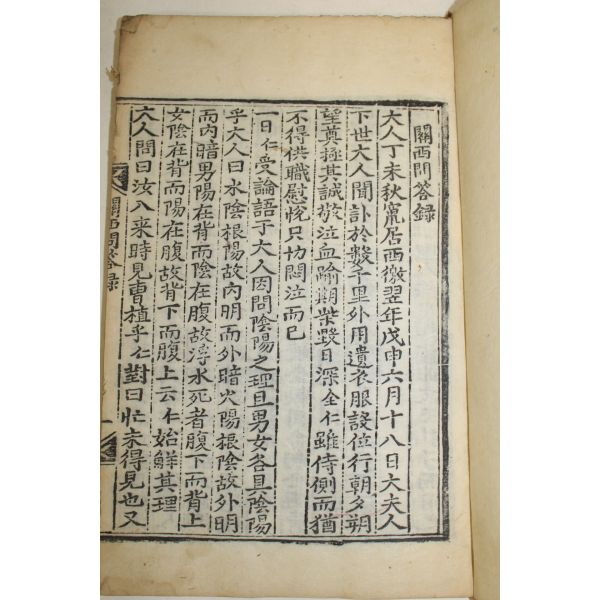 關西問答録
大人丁未秋竄居西徼翌年戊申六月十八日大夫人
下世大人聞訃於數千里外用遺衣服設位行朝夕朔
望奠極其誠敬泣血踰期柴毀日深全仁雖侍側而猶
不得供職慰悅只切悶泣而已
一日仁受論語于大人因問陰陽之理且男女各具陰陽
乎大人曰水陰根陽故内明而外暗火陽根陰故外明
而内暗男陽在背而陰在腹故浮水死者腹下而背上
女陰在背而陽在腹故背下而腹上云仁始觧其理
大人問曰汝入来時見曹植乎仁對曰忙未得見也又
關西問答録
一